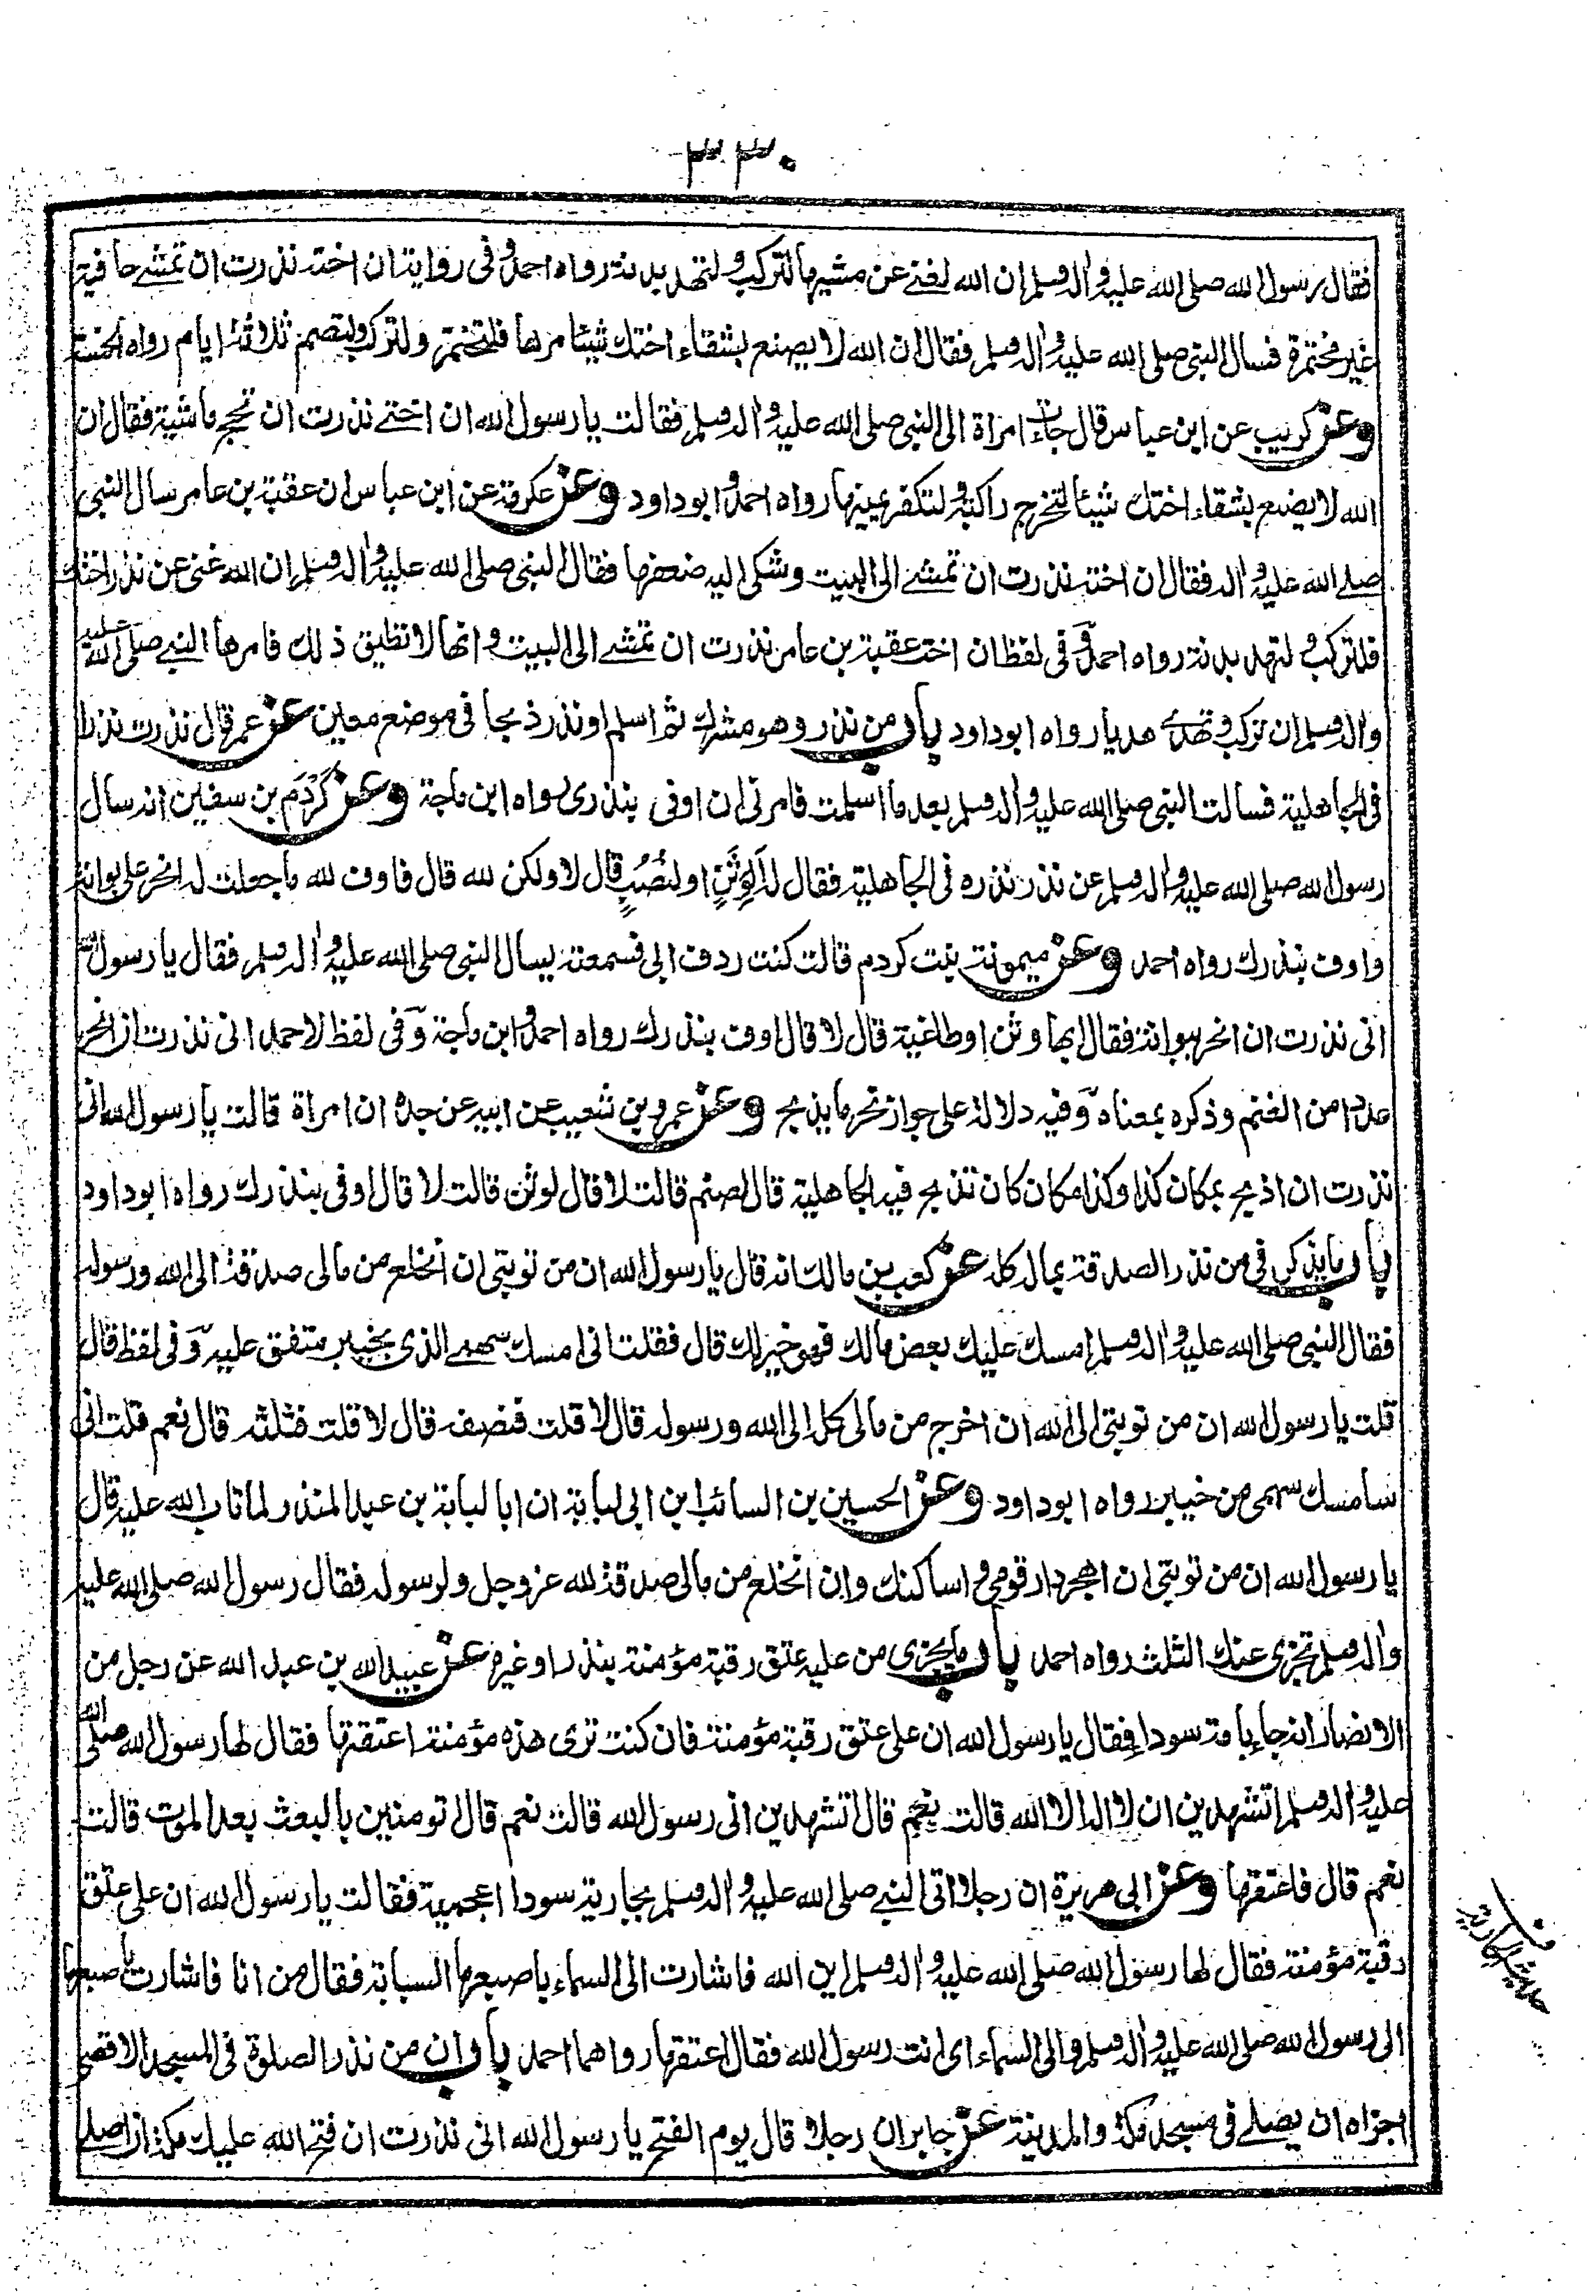 ٣٣٠
فقال رسول الله صلى الله عليه واله وسلم ان الله لغنے عن مشيها لتركب ولتهد بدنة رواه احمد وفى رواية ان اخته نذرت ان تمشے حافية
غير مختمرة فسال النبى صلى الله عليه واله وسلم فقال ان الله لا يصنع بشقاء اختك شيئا مرها فلتختمر ولتركب ولتصم ثلاثة ايام رواه الخمسة
وعن كريب عن ابن عباس قال جاءت امراة الى النبى صلى الله عليه واله وسلم فقالت يا رسول الله ان اختے نذرت ان تحج ماشية فقال ان
الله لا يصنع بشقاء اختك شيئا لتخرج راكبة ولتكفر يمينها رواه احمد وابو داود وعن عكرمة عن ابن عباس ان عقبة بن عامر سال النبى
صلے الله عليه واله فقال ان اخته نذرت ان تمشے الى البيت وشكى اليه ضعفها فقال النبى صلى الله عليه واله وسلم ان الله غنى عن نذر اختك
فلتركب ولتهد بدنة رواه احمد وفى لفظ ان اخت عقبة بن عامر نذرت ان تمشے الى البيت وانها لا تطيق ذلك فامرها النبے صلى الله عليه
واله وسلم ان تركب وتهدے هديا رواه ابو داود باب من نذر وهو مشرك ثم اسلم او نذر ذبحا فى موضع معين عن عمر قال نذرت نذرا
فى الجاهلية فسالت النبى صلى الله عليه واله وسلم بعد ما اسلمت فامرنى ان اوفى بنذرى رواه ابن ماجة وعن كَرْدَم بن سفين انه سال
رسول الله صلى الله عليه واله وسلم عن نذر نذره فى الجاهلية فقال له أَلِوَثَنٍ او لنُصُبٍ قال لا ولكن لله قال فاوف لله ما جعلت له انحر على بوانة
واوف بنذرك رواه احمد وعن ميمونة بنت كردم قالت كنت ردف ابى فسمعته يسال النبى صلى الله عليه واله وسلم فقال يا رسول الله
انى نذرت ان انحر ببوانة فقال ابها وثن او طاغية قال لا قال اوف بنذرك رواه احمد وابن ماجة وفى لفظ لاحمد انى نذرت ان انحر
عددا من الغنم وذكره بمعناه وفيه دلالة على جواز نحر ما يذبح وعن عمرو بن شعيب عن ابيه عن جده ان امراة قالت يا رسول الله انى
نذرت ان اذبح بمكان كذا وكذا مكان كان تذبح فيه الجاهلية قال لصنم قالت لا قال لوثن قالت لا قال اوفى بنذرك رواه ابو داود
باب ما يذكر فى من نذر الصدقة بماله كله عن كعب بن مالك انه قال يا رسول الله ان من توبتى ان انخلع من مالى صدقة الى الله ورسوله
فقال النبى صلى الله عليه واله وسلم امسك عليك بعض مالك فهو خير لك قال فقلت انى امسك سهمے الذى بخيبر متفق عليه وفى لفظ قال
قلت يا رسول الله ان من توبتى الى الله ان اخرج من مالى كله الى الله ورسوله قال لا قلت فنصفه قال لا قلت فثلثه قال نعم قلت انى
سامسك سهمى من خيبر رواه ابو داود وعن الحسين بن السائب ابن ابى لبابة ان ابا لبابة بن عبد المنذر لما تاب الله عليه قال
يا رسول الله ان من توبتى ان اهجر دار قومى واساكنك وان انخلع من مالى صدقة لله عز وجل ولرسوله فقال رسول الله صلى الله عليه
واله وسلم تجزى عنك الثلث رواه احمد باب ما يجزى من عليه عتق رقبة مؤمنة بنذر او غيره عن عبيد الله بن عبد الله عن رجل من
الانصار انه جاء بامة سوداء فقال يا رسول الله ان على عتق رقبة مؤمنة فان كنت ترى هذه مؤمنة اعتقتها فقال لها رسول الله صلى الله
عليه واله وسلم اتشهدين ان لا اله الا الله قالت نعم قال اتشهدين انى رسول الله قالت نعم قال اتومنين بالبعث بعد الموت قالت
نعم قال فاعتقها وعن ابى هريرة ان رجلا اتى النبے صلى الله عليه واله وسلم بجارية سودا اعجمية فقالت يا رسول الله ان على عتق
رقبة مؤمنة فقال لها رسول الله صلى الله عليه واله وسلم اين الله فاشارت الى السماء باصبعها السبابة فقال من انا فاشارت باصبعها
الى رسول الله صلى الله عليه واله وسلم والى السماء اى انت رسول الله فقال اعتقها رواهما احمد باب ان من نذر الصلوة فى المسجد الاقصى
اجزاه ان يصلے فى مسجد مكة والمدينة عن جابر ان رجلا قال يوم الفتح يا رسول الله انى نذرت ان فتح الله عليك مكة ان اصلے
ف
حديث الجارية